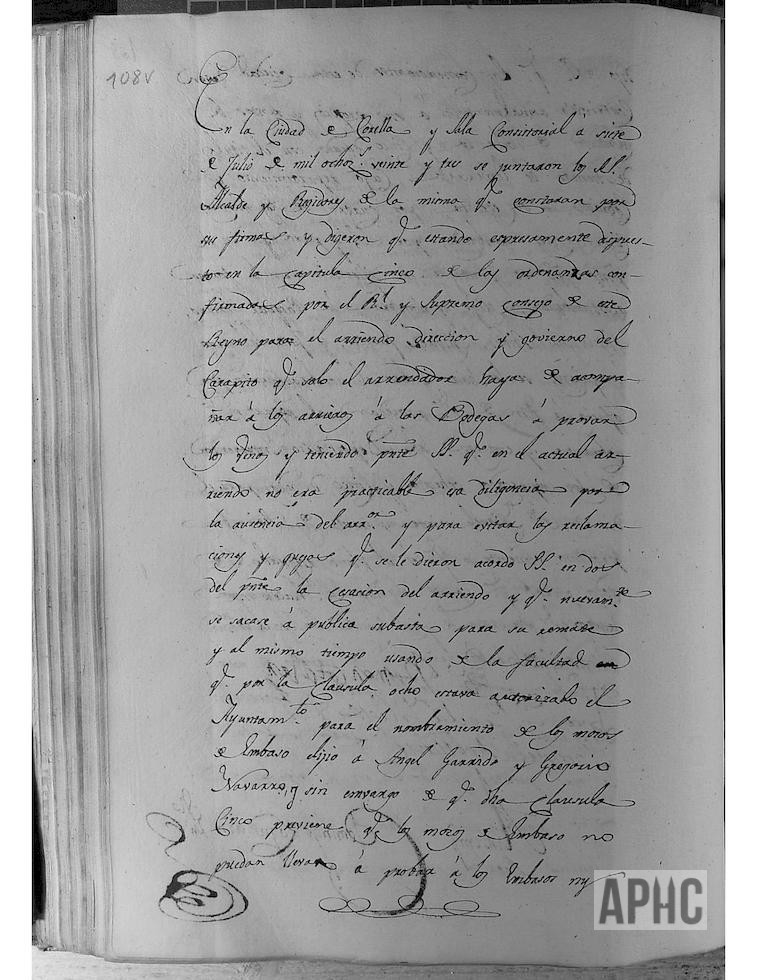 108v
En la Ciudad de Corella y Sala Consistorial á siete
de Julio de mil ochoz.s veinte y tres se juntaron los SS.
Alcalde y Rejidores de la misma q.e constaran por
sus firmas y dijeron q.e estando espresamente dispues-
to en la Capitula cinco de las ordenanzas con-
firmadas por el R.l y Supremo Consejo de este
Reyno para el arriendo direccion y govierno del
Carapito q.e solo el arrendador haya de acompa-
ñar á los arrieros á las Bodegas á provar
los vinos y teniendo pnte SS. q.e en el actual ar-
riendo no era practicable esa diligencia por
la ausencia del arr.or y para evitar las reclama-
ciones y quejas q.e se le dieron acordó SS. en dos
del pnte la cesacion del arriendo y q.e nuevam.te
se sacase á publica subasta para su remate
y al mismo tiempo usando de la facultad
q.e por la Clausula ocho estava autorizado el
Ayuntam.to para el nombramiento de los mozos
de Embaso elijió á Angel Garrido y Gregorio
Navarro, y sin embargo de q.e dha Clausula
Cinco previene q.e los mozos de Embaso no
puedan llevar á probar á los Embasos ni
APHC